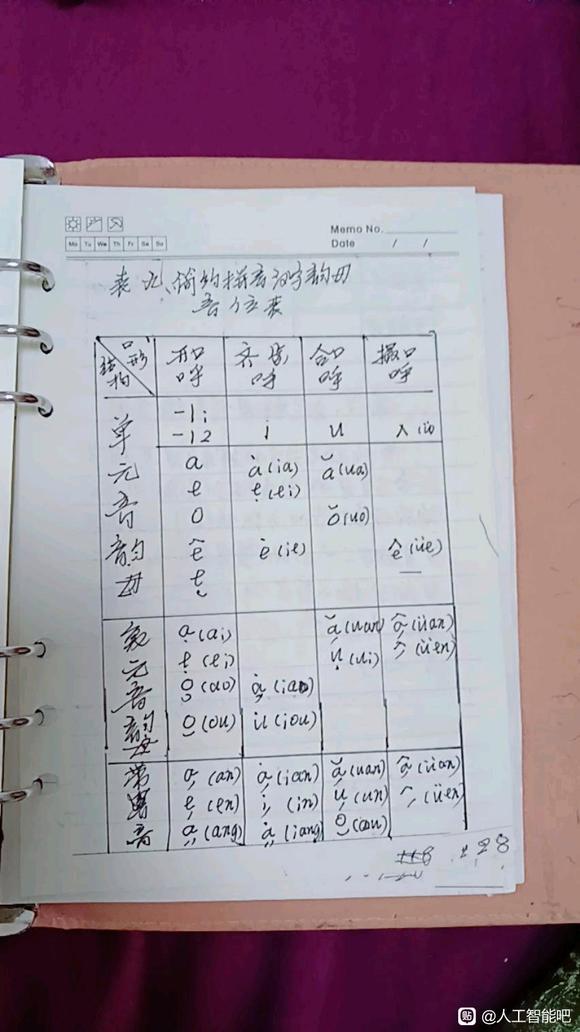 Memo No.
Mo Tu We Th Fr Sa Su
Date / /
表九、简约拼音汉字韵母
音位表
口形 结构 开口呼 齐齿呼 合口呼 撮口呼
单元音韵母
-1i
-12 i u λ (ü)
a ȧ (ia) ă (ua)
e ė (ei)
o ŏ (uo)
ê ė (ie) ê (üe)
e —
元音韵母
ạ (ai) ă (uan) â (üan)
ẹ (ei) ụ (ui) ^ (üen)
o (ao) ȧ (iao)
o (ou) i̇u (iou)
带鼻音
a (an) ȧ (ian) ă (uan) â (üan)
e (en) i (in) u (un) ^ (üen)
a (ang) ȧ (iang) o (ou)
128
贴 @人工智能吧